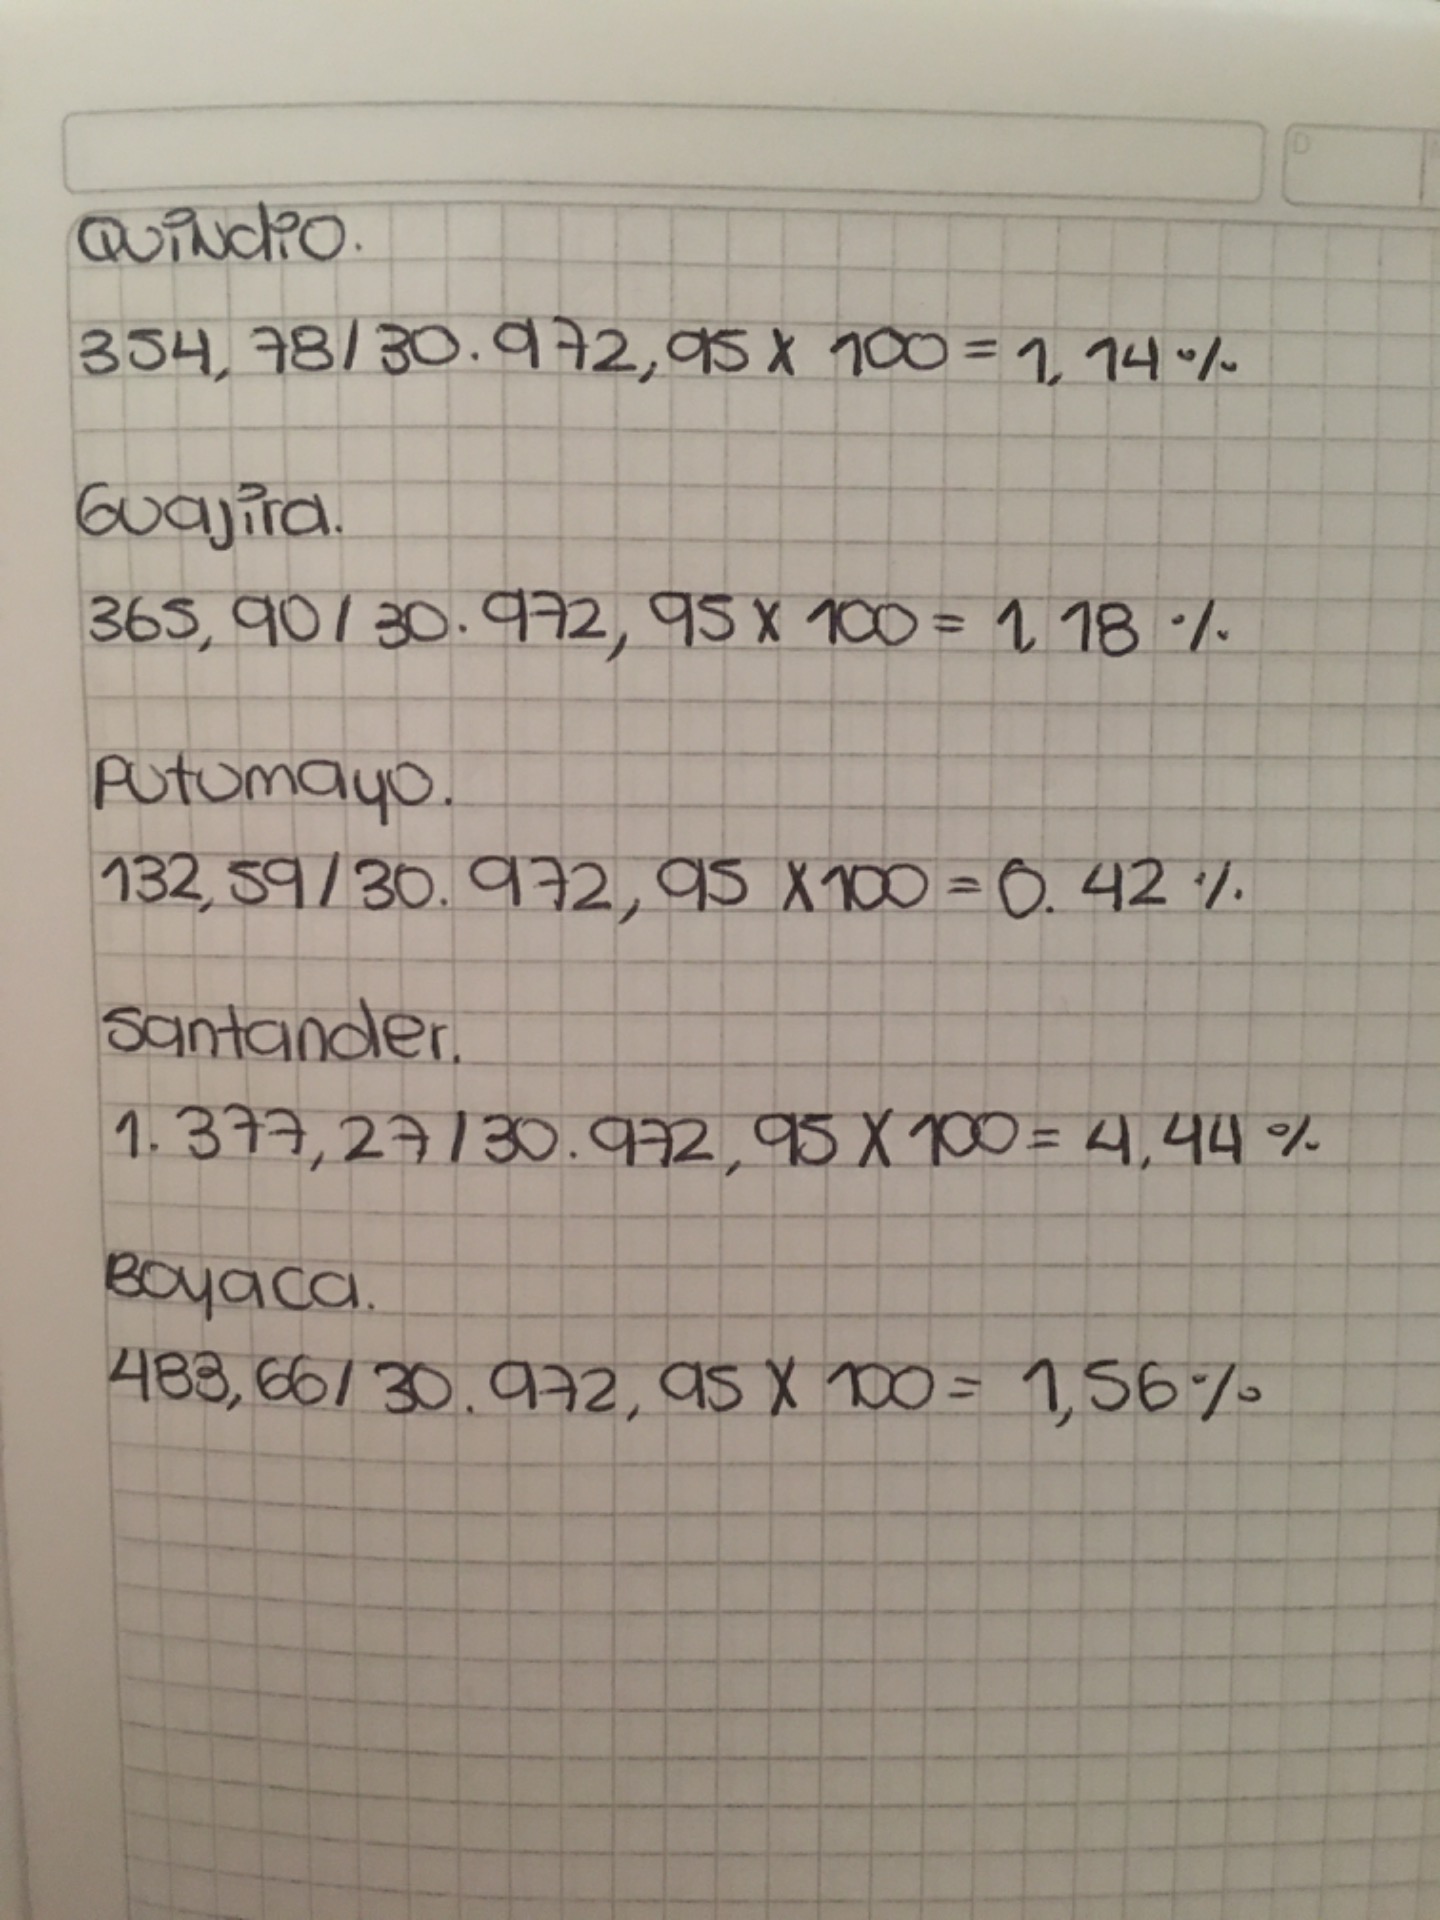 Quindio.
354,78/30.972,95 x 100 = 1,14%
Guajira.
365,90/30.972,95 x 100 = 1,18%
Putumayo.
132,59/30.972,95 x 100 = 0.42%
Santander.
1.377,27/30.972,95 x 100 = 4,44%
Boyaca.
483,66/30.972,95 x 100 = 1,56%